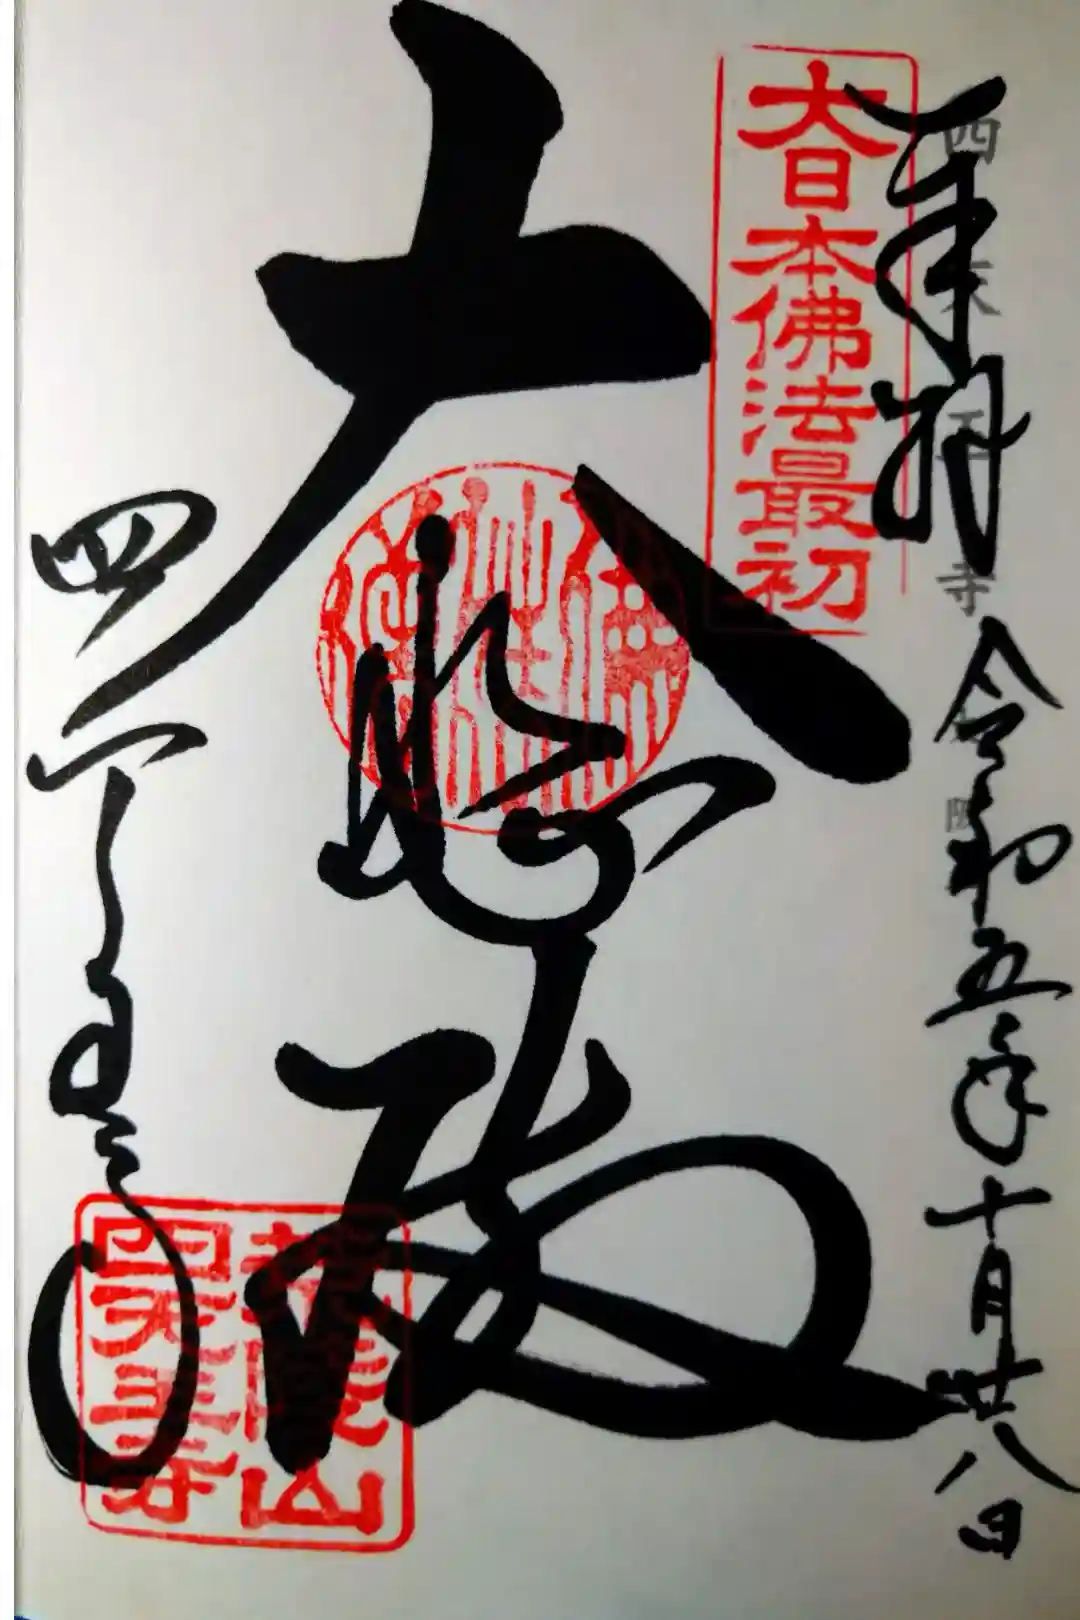 奉拝
令和五年十月廿八日
四天王寺
大日本佛法最初
大悲殿
四天王寺
荒陵山
四天王寺